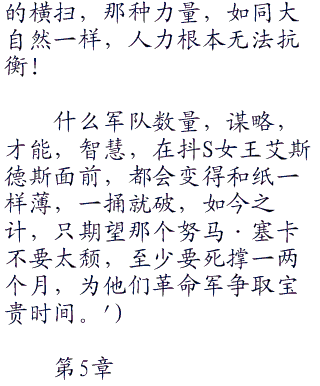 的横扫，那种力量，如同大
自然一样，人力根本无法抗
衡！
什么军队数量，谋略，
才能，智慧，在抖S女王艾斯
德斯面前，都会变得和纸一
样薄，一捅就破，如今之
计，只期望那个努马·塞卡
不要太颓，至少要死撑一两
个月，为他们革命军争取宝
贵时间。')
第5章